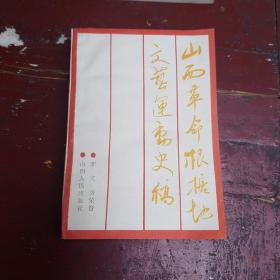 山西革命根据地
文艺运动史稿
●李文 齐荣晋
●山西人民出版社